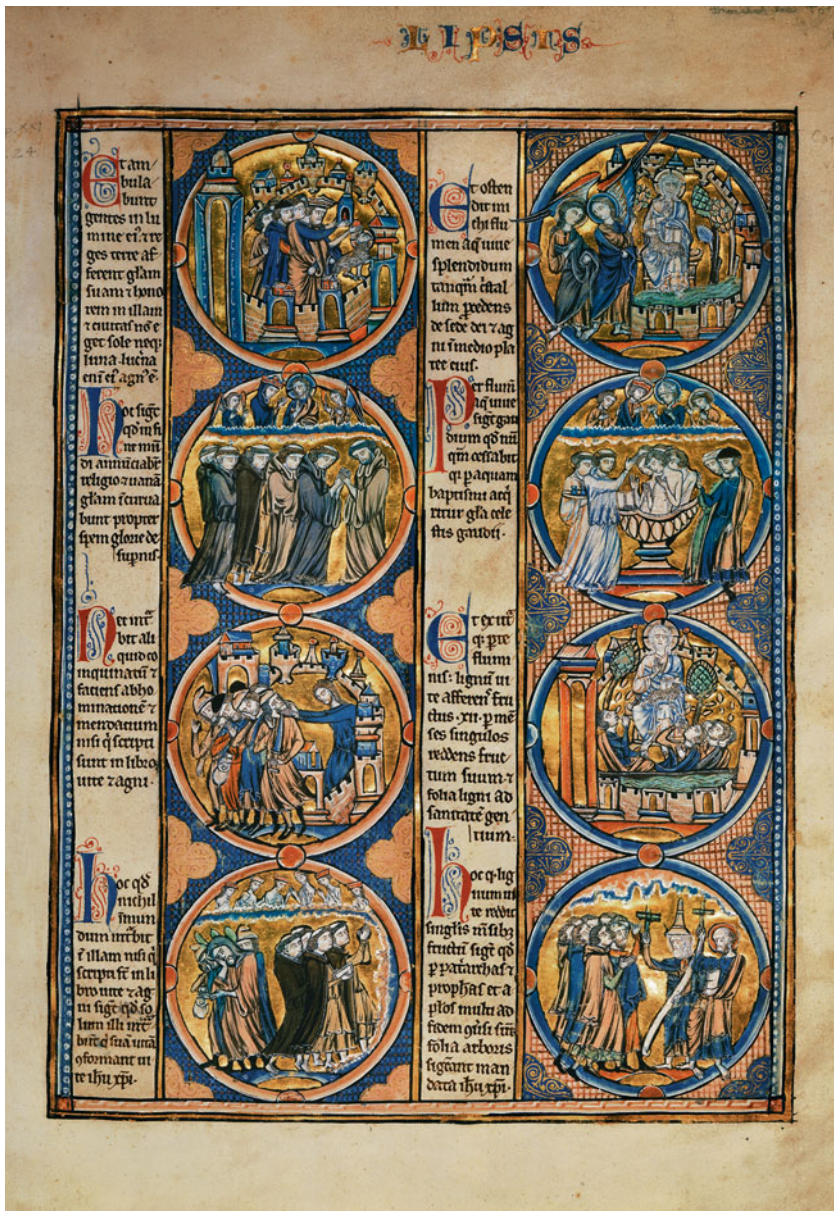 LIPSIS
Et am
bula
bunt
gentes in lu
mine ei⁹ ⁊ re
ges terre af
ferent glam
suam ⁊ hono
rem in illam
⁊ ciuitas nō e
get sole neq;
luna lucna
enī ei⁹ agn⁹ ē.
Hoc sigt
qd in fi
ne mū
di annūciabr̄
religio ⁊ uanā
glam
bunt propter
spem glorie de
supnis.
Nec intͣ
bit ali
quid co
inquinatū ⁊
faciens abho
minationē ⁊
mendacium
nisi q̇ scripti
sunt in libro
uite ⁊ agni.
Hoc qd
nichil
īmun
dum intͣbit
ī illam nisi q̇
scripti st̄ in li
bro uite ⁊ ag
ni sigt qd so
lum illi intͣ
būt q̇ suā uitā
ꝯformant ui
te ihū xpī.
Et osten
dit m̄
chi flu
men aq̄ uiue
splendidum
tanq̄m cͥstal
lum ꝓcedens
de sede dei ⁊ ag
ni ī medio pla
tee eius.
Per flum̄
aq̄ uiue
sigt gau
dium qd nū
q̄m cessabit
q; p aquam
baptismi acq̇
ritur gla cele
stis gaudii.
Et ex utͣ
q; pte
flumi
nis: lignū ui
te afferens fru
ctus .xii. p mē
ses singulos
reddens fruc
tum suum ⁊
folia ligni ad
sanitatē gen
tium.
Hoc q̇ lig
num ui
te reddit
singlis mēsib;
fructū sigt qd
p patͥarchas ⁊
prophas et a
plos multi ad
fidem
folia arboris
sigcant man
data ihū xpī.